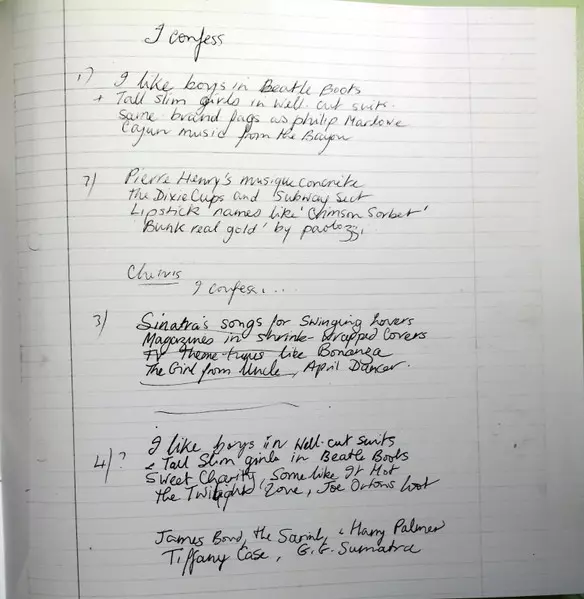 I confess
1) I like boys in Beatle Boots
+ Tall Slim girls in Well-cut suits.
Same brand fags as philip Marlowe
Cajun music from the Bayou
2) Pierre Henry's musique concrete
the Dixie Cups and Subway Sect
Lipstick names like 'Crimson Sorbet'
'Bunk real gold' by paolozzi
Chorus
I confess....
3) Sinatra's songs for Swinging Lovers
Magazines in shrink-wrapped covers
TV Theme-tunes like Bonanza
The Girl from Uncle, April Dancer.
I like boys in Well-cut suits
4)? & Tall Slim girls in Beatle Boots
Sweet Charity, Some like It Hot
the Twilight Zone, Joe Orton's
James Bond, the Saint, & Harry Palmer
Tiffany Case, G.G. Sumatra